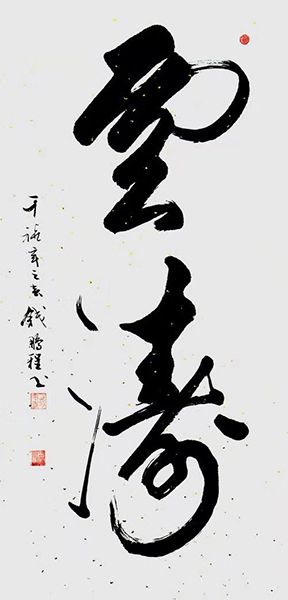 雲濤
千禧年之春 錢鵬程书